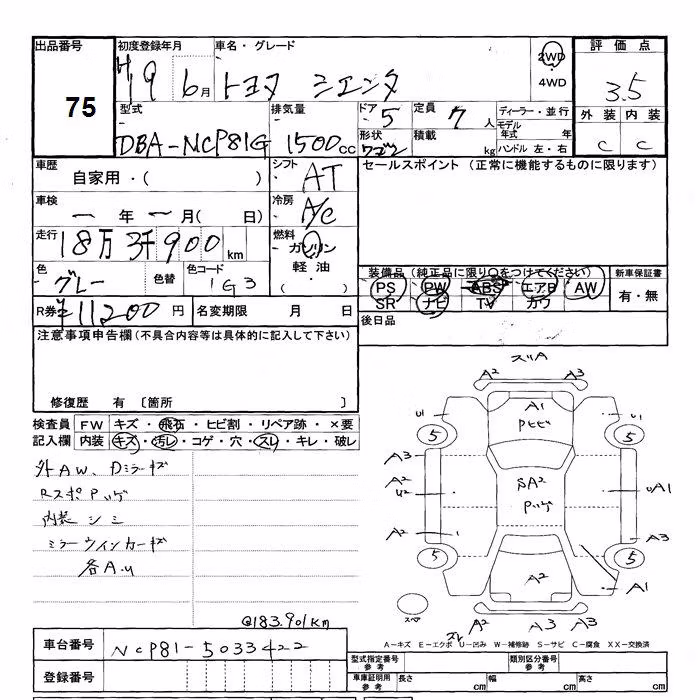 出品番号 初度登録年月 車名・グレード 2WD 評価点
75 H19 6月 トヨタ シエンタ 4WD 3.5
型式 排気量 ドア 5 定員 7人 ディーラー・並行 外装 内装
モデル年式 年
DBA-NCP81G 1500cc 形状 ワゴン 積載 kg ハンドル 左・右 C C
車歴 シフト AT セールスポイント (正常に機能するものに限ります)
自家用・( )
車検 冷房 A/C
一年一月( 日)
走行 18万3千900km 燃料 ガソリン
軽油
( )
色 グレー 色替 色コード 1G3 装備品(純正品に限り○をつけてください) 新車保証書
PS PW ABS エアB AW 有・無
SR ナビ TV カワ
R券 ¥11200円 名変期限 月 日 後日品
注意事項申告欄(不具合内容等は具体的に記入して下さい)
修復歴 有 〔箇所 〕
検査員 FW キズ・飛石・ヒビ割・リペア跡・×要
記入欄 内装 キズ・汚レ・コゲ・穴・スレ・キレ・破レ
外AW、Dミラーキズ
RスポPハゲ
内装シミ
ミラーウインカーキズ
各A.U
@183.901km
スリA
A2 A3
U1 A1 U1
Pヒビ
5 5
A3
A2 SA2 UA1
U2 Pハゲ
A2 A3
5 5
A2 A1
スペア
スレ
A2 A3 A3
A-キズ E-エクボ U-凹み W-補修跡 S-サビ C-腐食 XX-交換済
車台番号 NCP81-5033422
型式指定番号 参考 類別区分番号 参考
登録番号
車庫証明用 参考 長さ cm 幅 cm 高さ cm